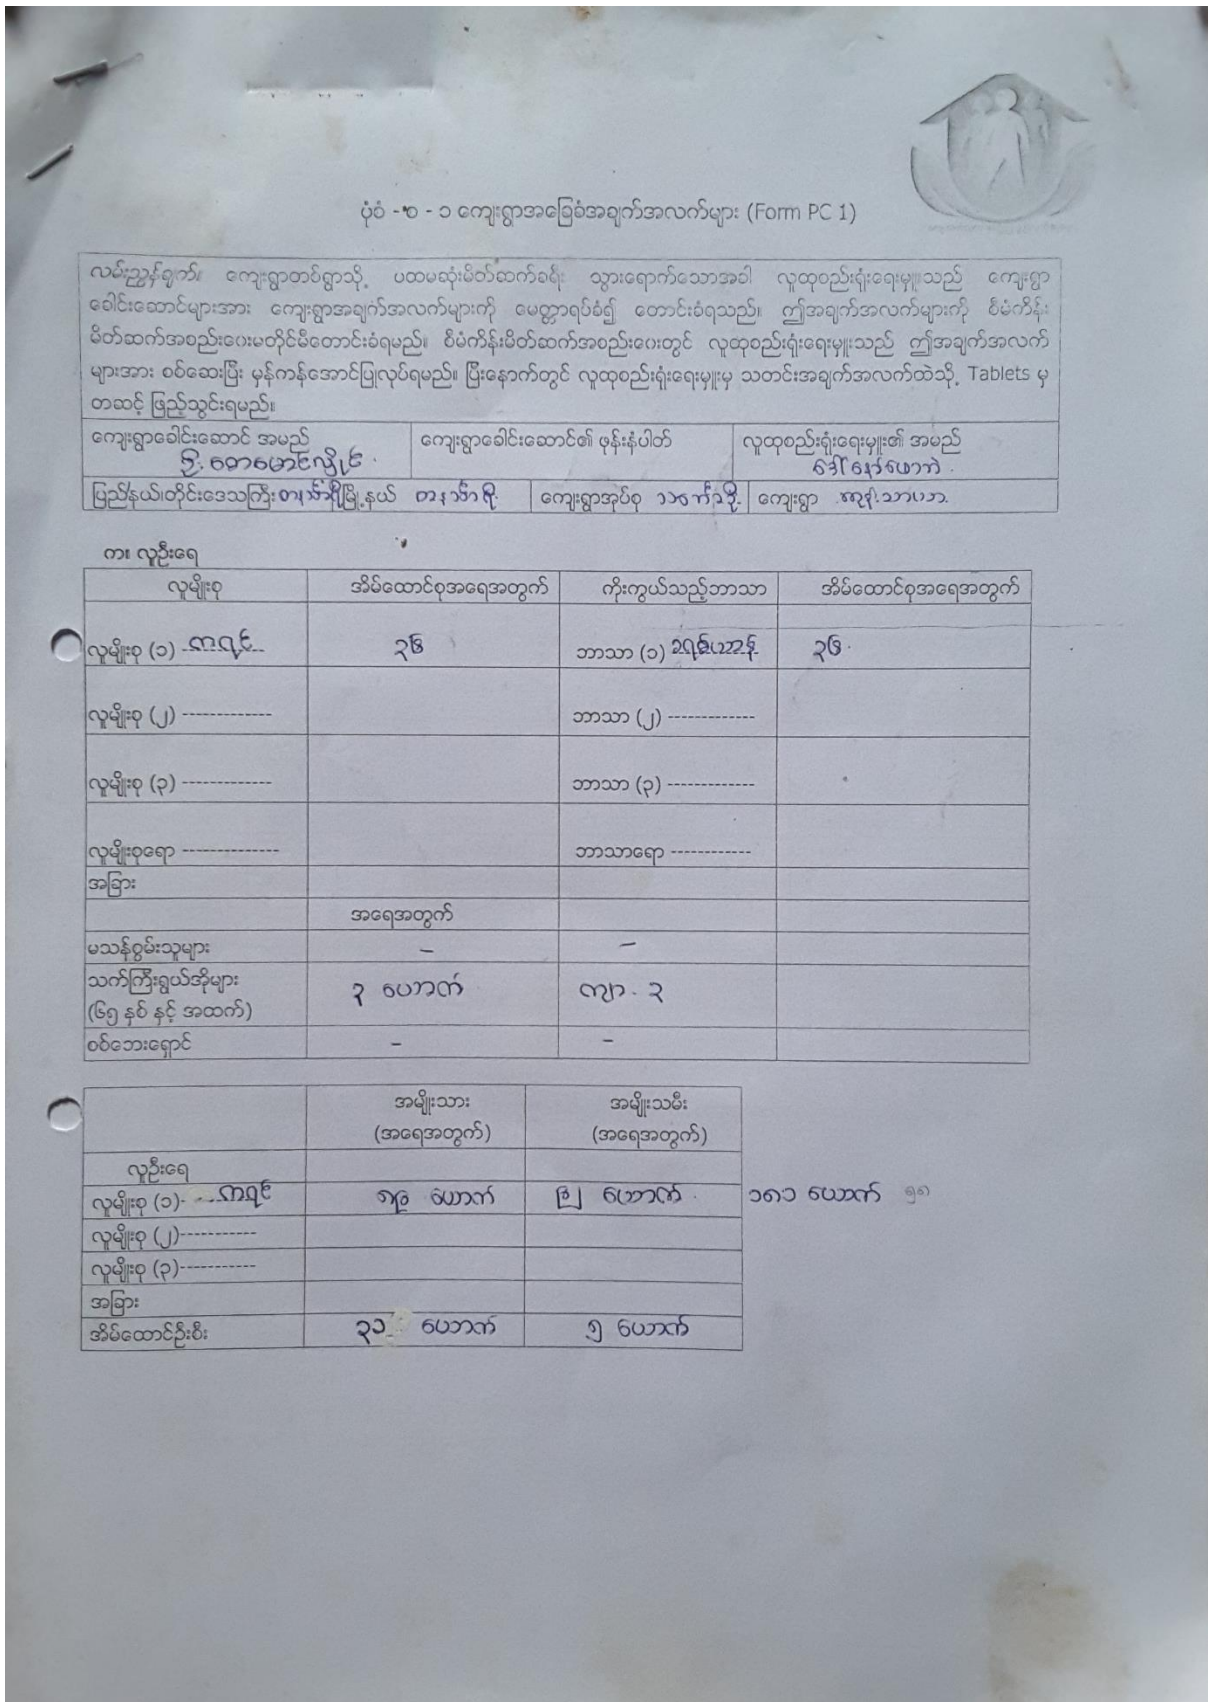 ပုံစံ -စ - ၁ ကျေးရွာအခြေခံအချက်အလက်များ (Form PC 1)
လမ်းညွှန်ချက်။ ကျေးရွာတစ်ရွာသို့ ပထမဆုံးမိတ်ဆက်ခရီး သွားရောက်သောအခါ လူထုစည်းရုံးရေးမှူးသည် ကျေးရွာ
ခေါင်းဆောင်များအား ကျေးရွာအချက်အလက်များကို မေတ္တာရပ်ခံ၍ တောင်းခံရသည်။ ဤအချက်အလက်များကို စီမံကိန်း
မိတ်ဆက်အစည်းဝေးမတိုင်မီတောင်းခံရမည်။ စီမံကိန်းမိတ်ဆက်အစည်းဝေးတွင် လူထုစည်းရုံးရေးမှူးသည် ဤအချက်အလက်
များအား စစ်ဆေးပြီး မှန်ကန်အောင်ပြုလုပ်ရမည်။ ပြီးနောက်တွင် လူထုစည်းရုံးရေးမှူးမှ သတင်းအချက်အလက်ထဲသို့ Tablets မှ
တဆင့် ဖြည့်သွင်းရမည်။
ကျေးရွာခေါင်းဆောင် အမည် ကျေးရွာခေါင်းဆောင်၏ ဖုန်းနံပါတ် လူထုစည်းရုံးရေးမှူး၏ အမည်
ဦးစောမောင်လှိုင်
ပြည်နယ်၊တိုင်းဒေသကြီး တနင်္သာရီ မြို့နယ် တနင်္သာရီ ကျေးရွာအုပ်စု ကျေးရွာ
က။ လူဦးရေ
လူမျိုးစု အိမ်ထောင်စုအရေအတွက် ကိုးကွယ်သည့်ဘာသာ အိမ်ထောင်စုအရေအတွက်
လူမျိုးစု (၁) ကရင် ၃၆ ဘာသာ (၁) ခရစ်ယာန် ၃၆
လူမျိုးစု (၂) ------------- ဘာသာ (၂) -------------
လူမျိုးစု (၃) ------------- ဘာသာ (၃) -------------
လူမျိုးစုရော -------------- ဘာသာရော ------------
အခြား
အရေအတွက်
မသန်စွမ်းသူများ – –
သက်ကြီးရွယ်အိုများ ၃ ယောက် ကျား ၃
(၆၅ နှစ် နှင့် အထက်)
စစ်ဘေးရှောင် – –
အမျိုးသား အမျိုးသမီး
(အရေအတွက်) (အရေအတွက်)
လူဦးရေ
လူမျိုးစု (၁) ကရင် ယောက် ယောက် ၁၈၁ ယောက်
လူမျိုးစု (၂)-----------
လူမျိုးစု (၃)-----------
အခြား
အိမ်ထောင်ဦးစီး ၃၁ ယောက် ၅ ယောက်